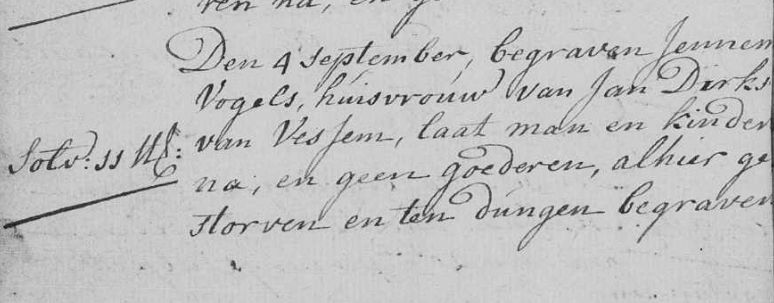 ren na, en g
Den 4 september, begraven Jennem
Vogels, huisvrouw van Jan Dirks
van Vessem, laat man en kinder
Solv: 11 st:
na, en geen goederen, alhier ge
storven en ten dungen begraven